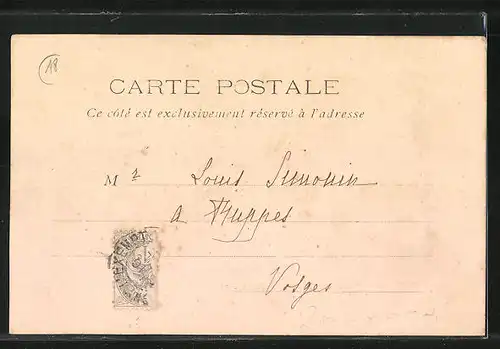 18
CARTE POSTALE
Ce côté est exclusivement réservé à l'adresse
Mr Louis Simonin
a Ruppes
Vosges